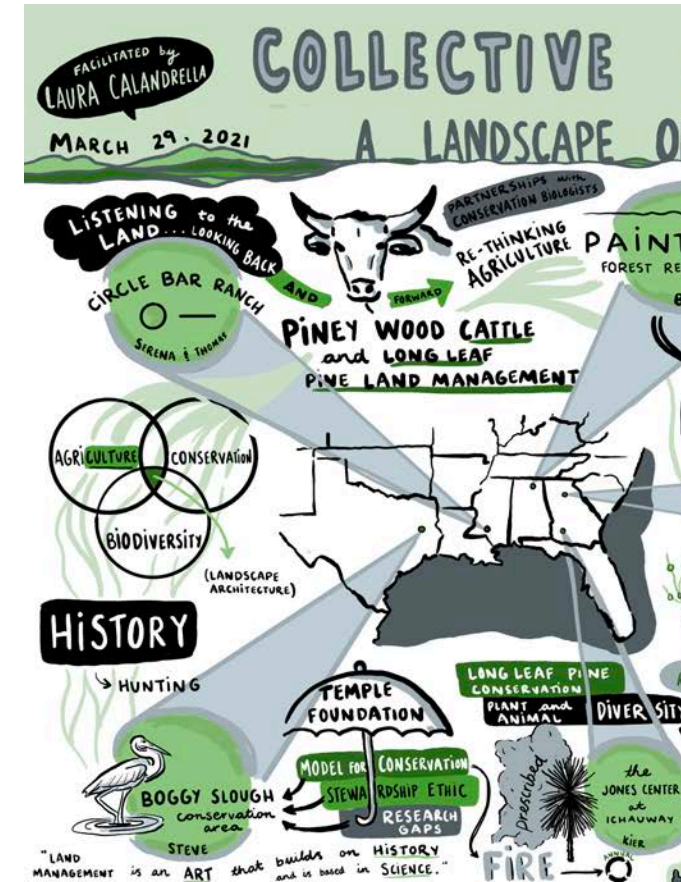 FACILITATED by
LAURA CALANDRELLA
MARCH 29, 2021
COLLECTIVE
A LANDSCAPE O
LISTENING to the
LAND... LOOKING
BACK
AND
FORWARD
PARTNERSHIPS with
CONSERVATION BIOLOGISTS
RE-THINKING
AGRICULTURE
PAINT
FOREST RE
CIRCLE BAR RANCH
SERENA & THOMAS
PINEY WOOD CATTLE
and LONG LEAF
PINE LAND MANAGEMENT
AGRICULTURE
CONSERVATION
BIODIVERSITY
(LANDSCAPE
ARCHITECTURE)
HISTORY
HUNTING
TEMPLE
FOUNDATION
MODEL FOR CONSERVATION
STEWARDSHIP ETHIC
RESEARCH
GAPS
BOGGY SLOUGH
conservation
area
STEVE
LONG LEAF PINE
CONSERVATION
PLANT and
ANIMAL DIVERSITY
Prescribed
FIRE
ANNUAL
the
JONES CENTER
at
ICHAUWAY
KIER
"LAND
MANAGEMENT is an ART that builds on HISTORY
and is based in SCIENCE."